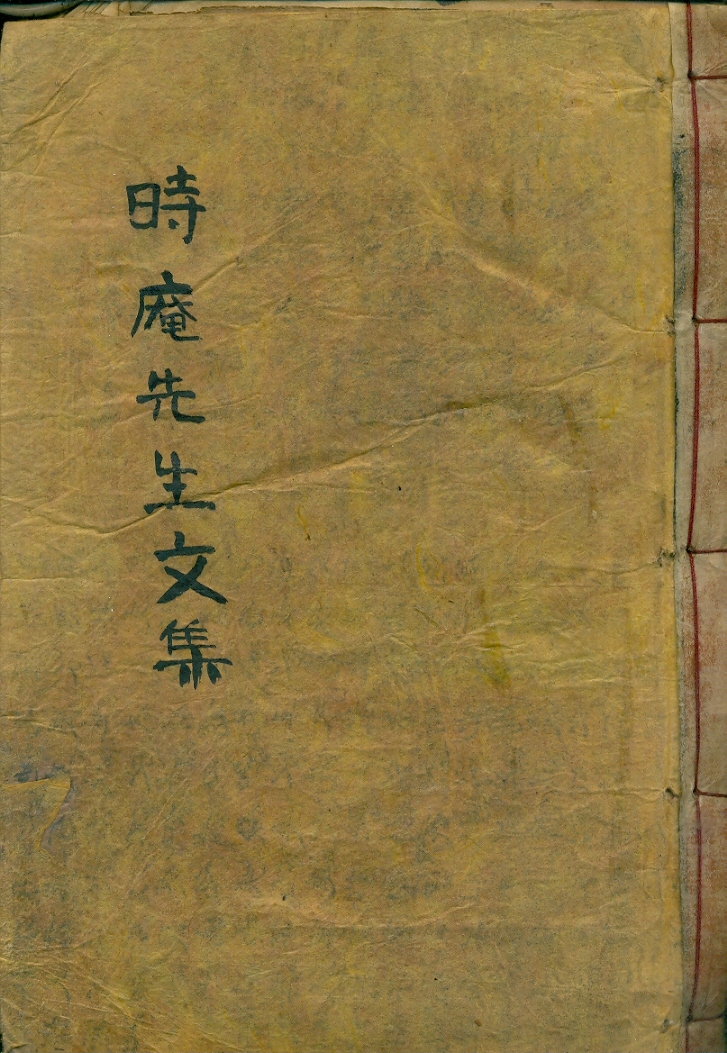 時庵先生文集